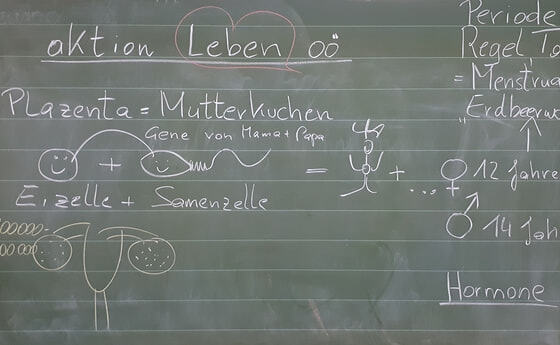 aktion Leben oö
Periode
Regel
= Menstrua
„Erdbeerw
Plazenta = Mutterkuchen
Gene von Mama + Papa
+ = + ... ♀ 12 Jahre
Eizelle + Samenzelle
♂ 14 Jah
00000-
000
Hormone